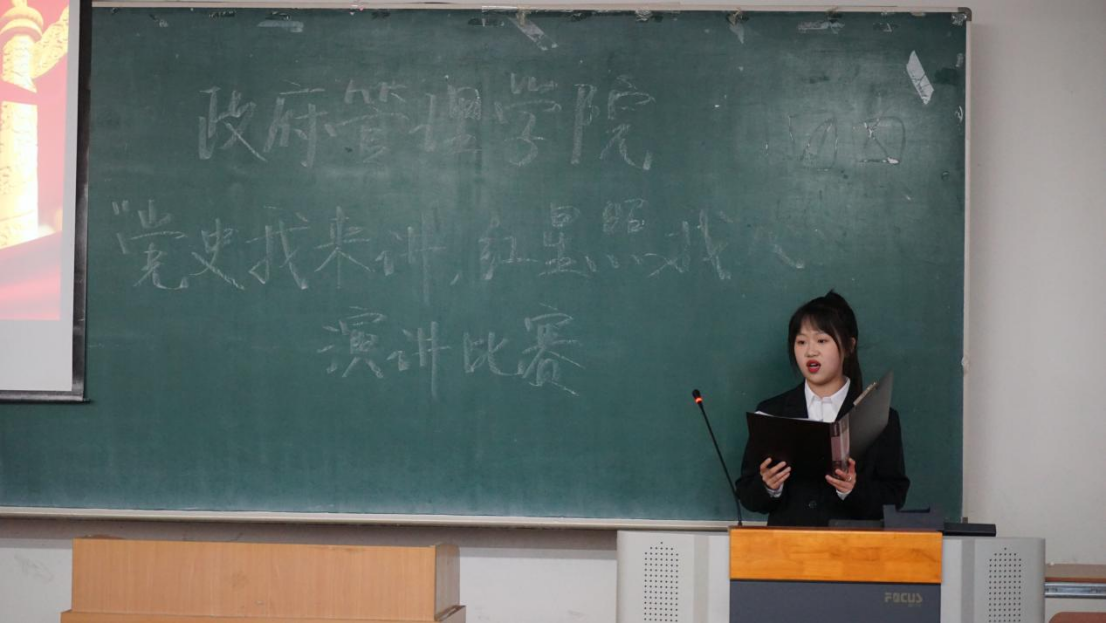 政府管理学院
“党史我来讲,红星照我
演讲比赛
FOCUS